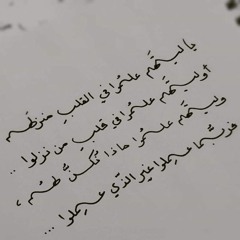 يا ليتهم علموا في القلب منزلهم
أو ليتهم علموا في قلب من نزلوا ..
وليتهم علموا ماذا نكنُّ لهم ،
فربّما عملوا غير الذي عملوا ...